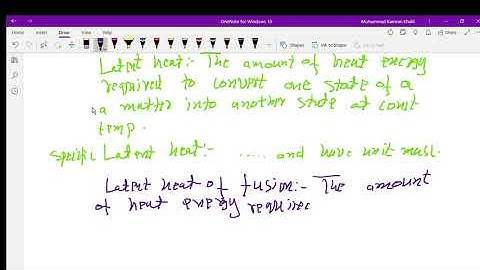 OneNote for Windows 10
Muhammad Kamran Khalil
Home Insert Draw View Help
Shapes
Latent heat:- The amount of heat energy
required to convert one state of a
a matter into another state at const
temp.
specific Latent heat:- ..... and have unit mass.
Latent heat of fusion:- The amount
of heat energy required